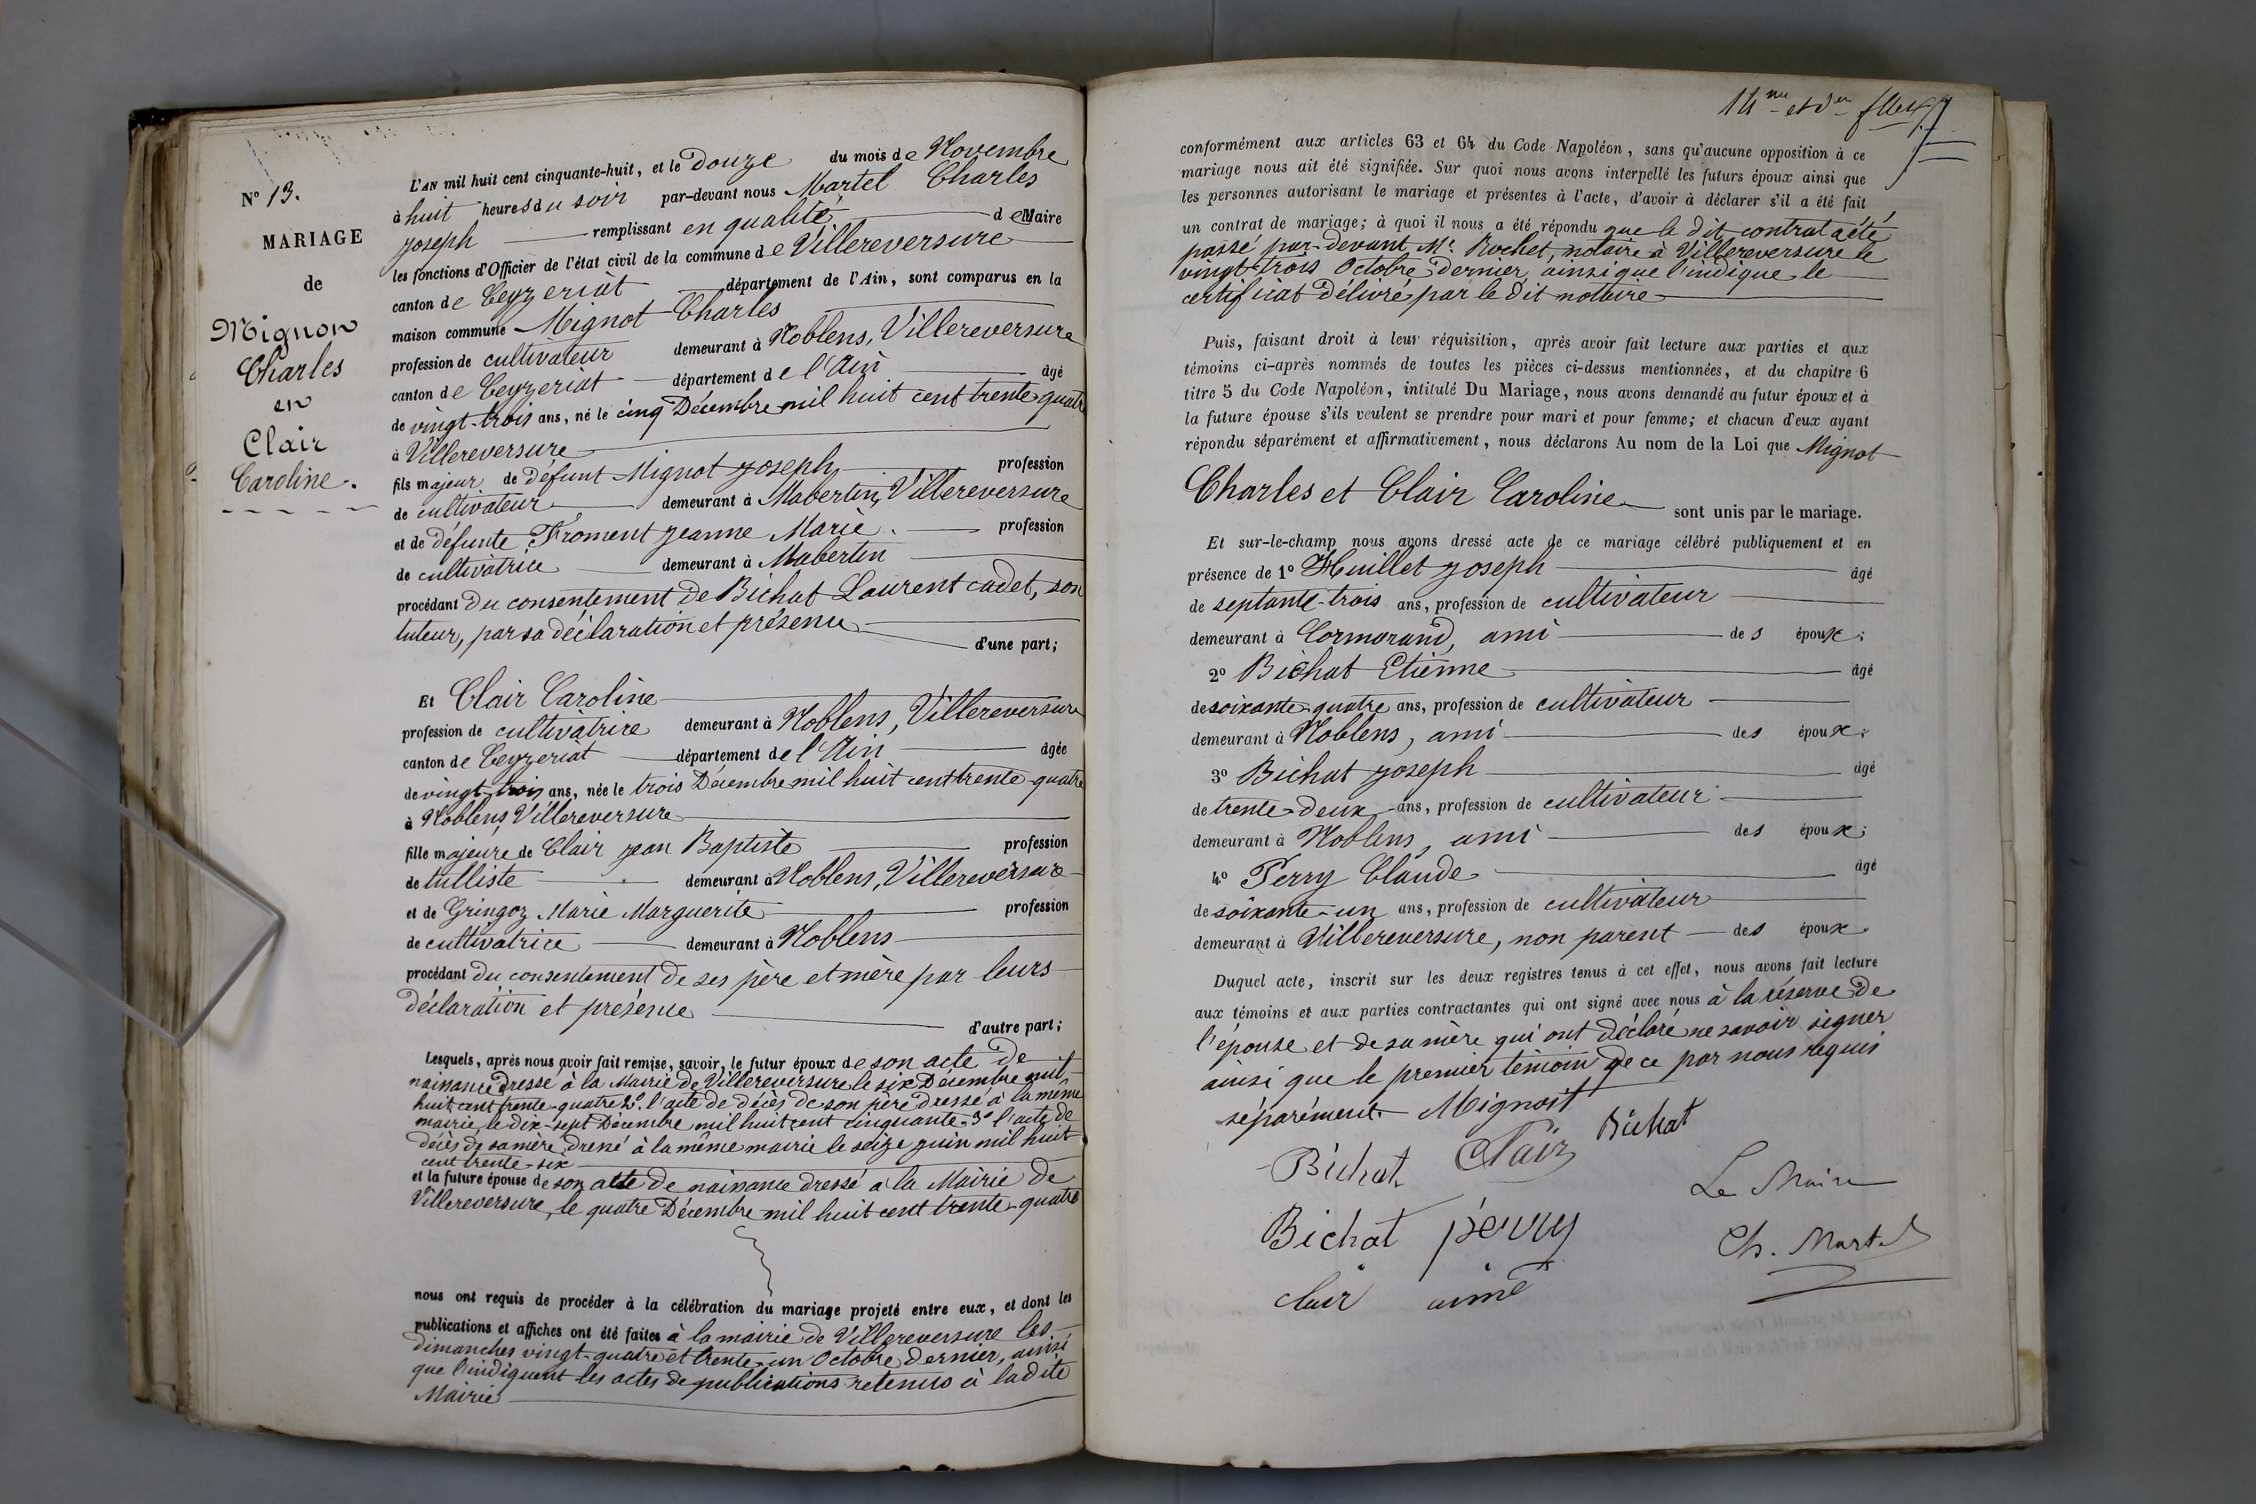 N° 13.
MARIAGE
de
Mignon
Charles
en
Clair
Caroline.
L'AN mil huit cent cinquante-huit, et le douze du mois de Novembre
à huit heures du soir par-devant nous Martel Charles
Joseph remplissant en qualité de Maire
les fonctions d'Officier de l'état civil de la commune de Villereversure
canton de Ceyzeriat département de l'Ain, sont comparus en la
maison commune Mignot Charles
profession de cultivateur demeurant à Noblens, Villereversure
canton de Ceyzeriat département de l'Ain âgé
de vingt-trois ans, né le cinq Décembre mil huit cent trente quatre
à Villereversure
fils majeur de défunt Mignot Joseph profession
de cultivateur demeurant à Mabertin, Villereversure
et de défunte Froment Jeanne Marie. profession
de cultivatrice demeurant à Mabertin
procédant du consentement de Bichat Laurent cadet, son
tuteur, par sa déclaration et présence d'une part;
Et Clair Caroline
profession de cultivatrice demeurant à Noblens, Villereversure
canton de Ceyzeriat département de l'Ain âgée
de vingt-trois ans, née le trois Décembre mil huit cent trente-quatre
à Noblens, Villereversure
fille majeure de Clair Jean Baptiste profession
de tulliste demeurant à Noblens, Villereversure
et de Gringoz Marie Marguerite profession
de cultivatrice demeurant à Noblens
procédant du consentement de ses père et mère par leurs
déclaration et présence
d'autre part;
Lesquels, après nous avoir fait remise, savoir, le futur époux de son acte de
naissance dressé à la Mairie de Villereversure le six Décembre mil
huit cent trente-quatre 2°. l'acte de décès de son père dressé à la même
mairie, le dix-sept Décembre mil huit cent cinquante. 3° l'acte de
décès de sa mère, dressé à la même mairie le seize juin mil huit
cent trente-six
et la future épouse de son acte de naissance dressé à la Mairie de
Villereversure, le quatre Décembre mil huit cent trente-quatre
nous ont requis de procéder à la célébration du mariage projeté entre eux, et dont les
publications et affiches ont été faites à la mairie de Villereversure les
dimanches vingt-quatre et trente-un Octobre dernier, ainsi
que l'indiquent les actes de publications retenus à la dite
Mairie
14me et der
conformément aux articles 63 et 64 du Code Napoléon, sans qu'aucune opposition à ce
mariage nous ait été signifiée. Sur quoi nous avons interpellé les futurs époux ainsi que
les personnes autorisant le mariage et présentes à l'acte, d'avoir à déclarer s'il a été fait
un contrat de mariage; à quoi il nous a été répondu que le dit contrat a été
passé par-devant Me. Rochet, notaire à Villereversure le
vingt-trois Octobre dernier ainsi que l'indique le
certificat délivré par le dit notaire
Puis, faisant droit à leur réquisition, après avoir fait lecture aux parties et aux
témoins ci-après nommés de toutes les pièces ci-dessus mentionnées, et du chapitre 6
titre 5 du Code Napoléon, intitulé Du Mariage, nous avons demandé au futur époux et à
la future épouse s'ils veulent se prendre pour mari et pour femme; et chacun d'eux ayant
répondu séparément et affirmativement, nous déclarons Au nom de la Loi que Mignot
Charles et Clair Caroline sont unis par le mariage.
Et sur-le-champ nous avons dressé acte de ce mariage célébré publiquement et en
présence de 1° Huillet Joseph âgé
de septante-trois ans, profession de cultivateur
demeurant à Cormorand, ami des époux;
2° Bichat Etienne âgé
de soixante-quatre ans, profession de cultivateur
demeurant à Noblens, ami des époux;
3° Bichat Joseph âgé
de trente-deux ans, profession de cultivateur
demeurant à Noblens, ami des époux;
4° Perry Claude âgé
de soixante-un ans, profession de cultivateur
demeurant à Villereversure, non parent des époux.
Duquel acte, inscrit sur les deux registres tenus à cet effet, nous avons fait lecture
aux témoins et aux parties contractantes qui ont signé avec nous à la réserve de
l'épouse et de sa mère qui ont déclaré ne savoir signer
ainsi que le premier témoin de ce par nous requis
séparément. Mignost
Bichat Clair Bichat
Le Maire
Bichat perry
Ch. Martel
clair aimé